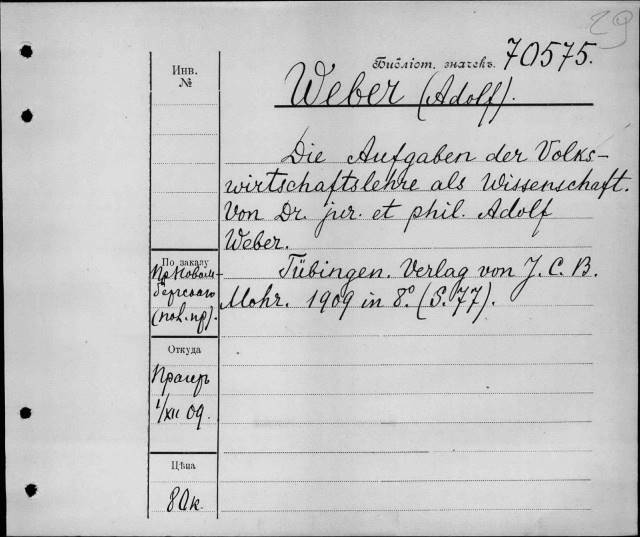 29
Библіот. значекъ. 70575.
Инв.
№
Weber (Adolf).
Die Aufgaben der Volks-
wirtschaftslehre als Wissenschaft.
Von Dr. jur. et phil. Adolf
Weber.
Tübingen. Verlag von J. C. B.
Mohr. 1909 in 8º. (S. 77).
По заказу
Пр. Новом-
бергскаго
(пок. пр).
Откуда
Прагеръ
1/XII 09.
Цѣна